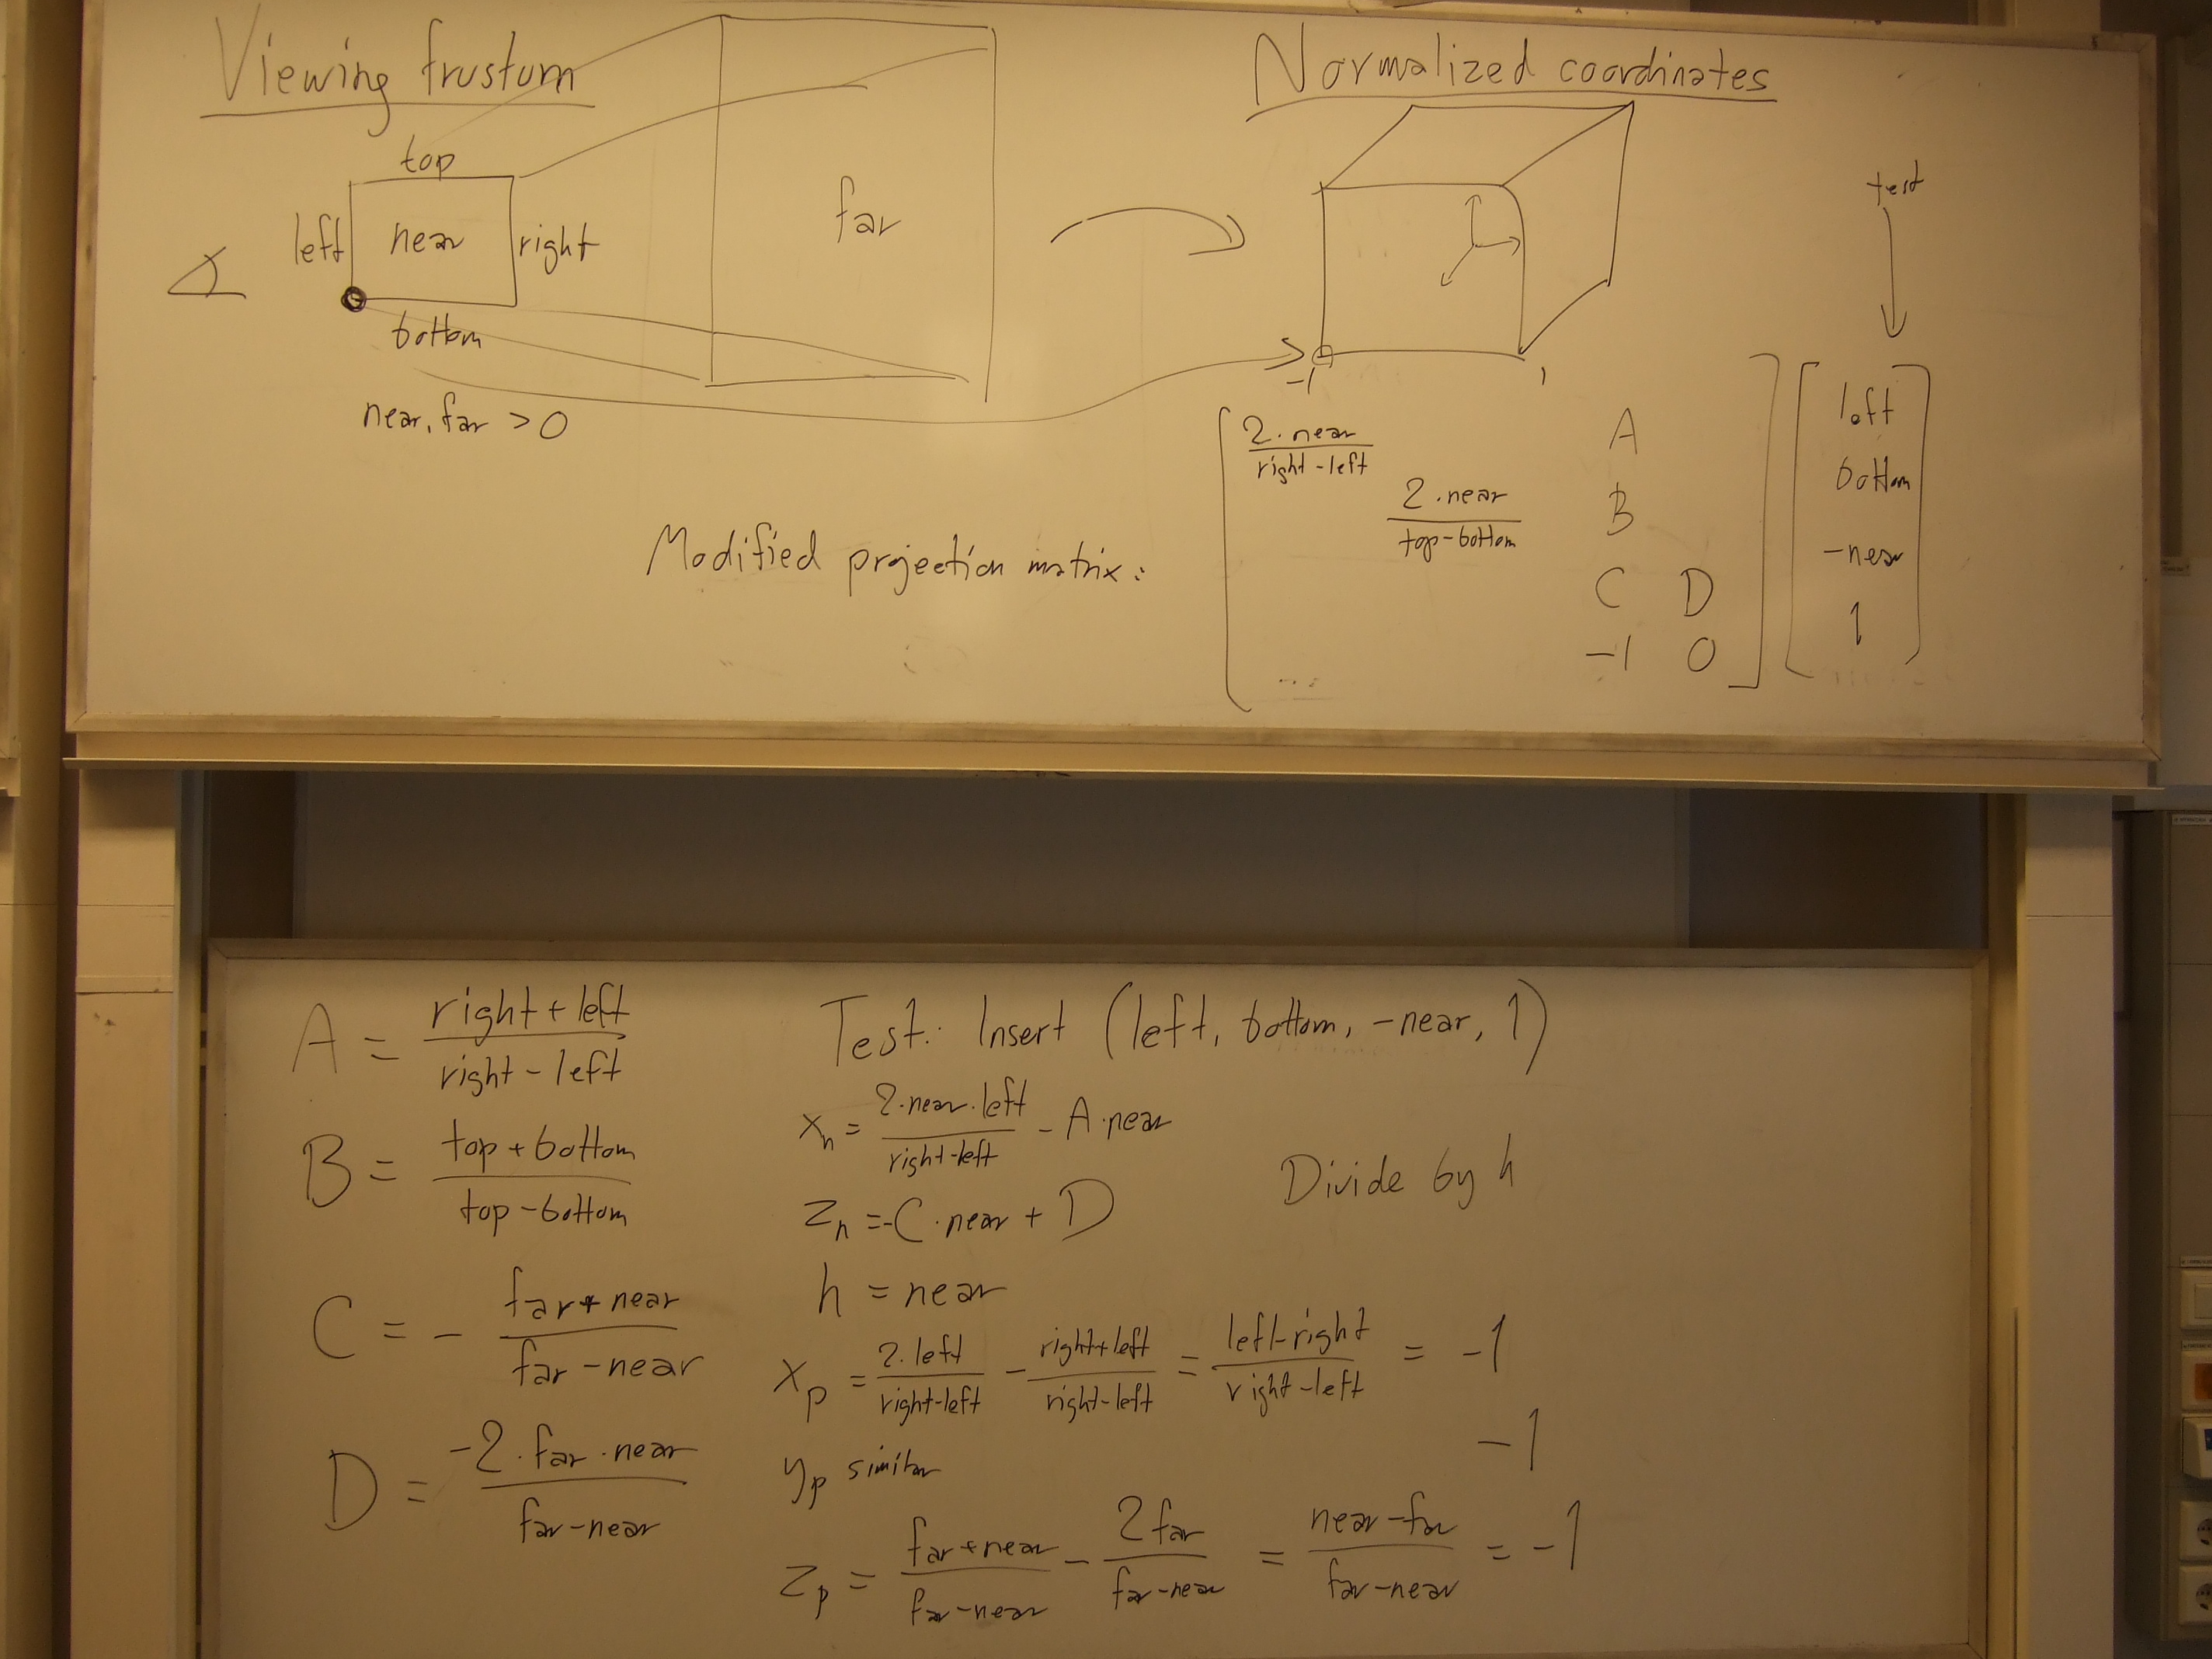 Viewing frustum
top
left near right
bottom
far
near, far > 0
Normalized coordinates
-1 1
test
Modified projection matrix:
2·near / right-left A left
2·near / top-bottom B bottom
C D -near
... -1 0 1
A = right+left / right-left
B = top+bottom / top-bottom
C = - far+near / far-near
D = -2·far·near / far-near
Test: Insert (left, bottom, -near, 1)
xₕ = 2·near·left / right-left - A·near
zₕ = -C·near + D
Divide by h
h = near
xₚ = 2·left / right-left - right+left / right-left = left-right / right-left = -1
yₚ similar -1
zₚ = far+near / far-near - 2far / far-near = near-far / far-near = -1